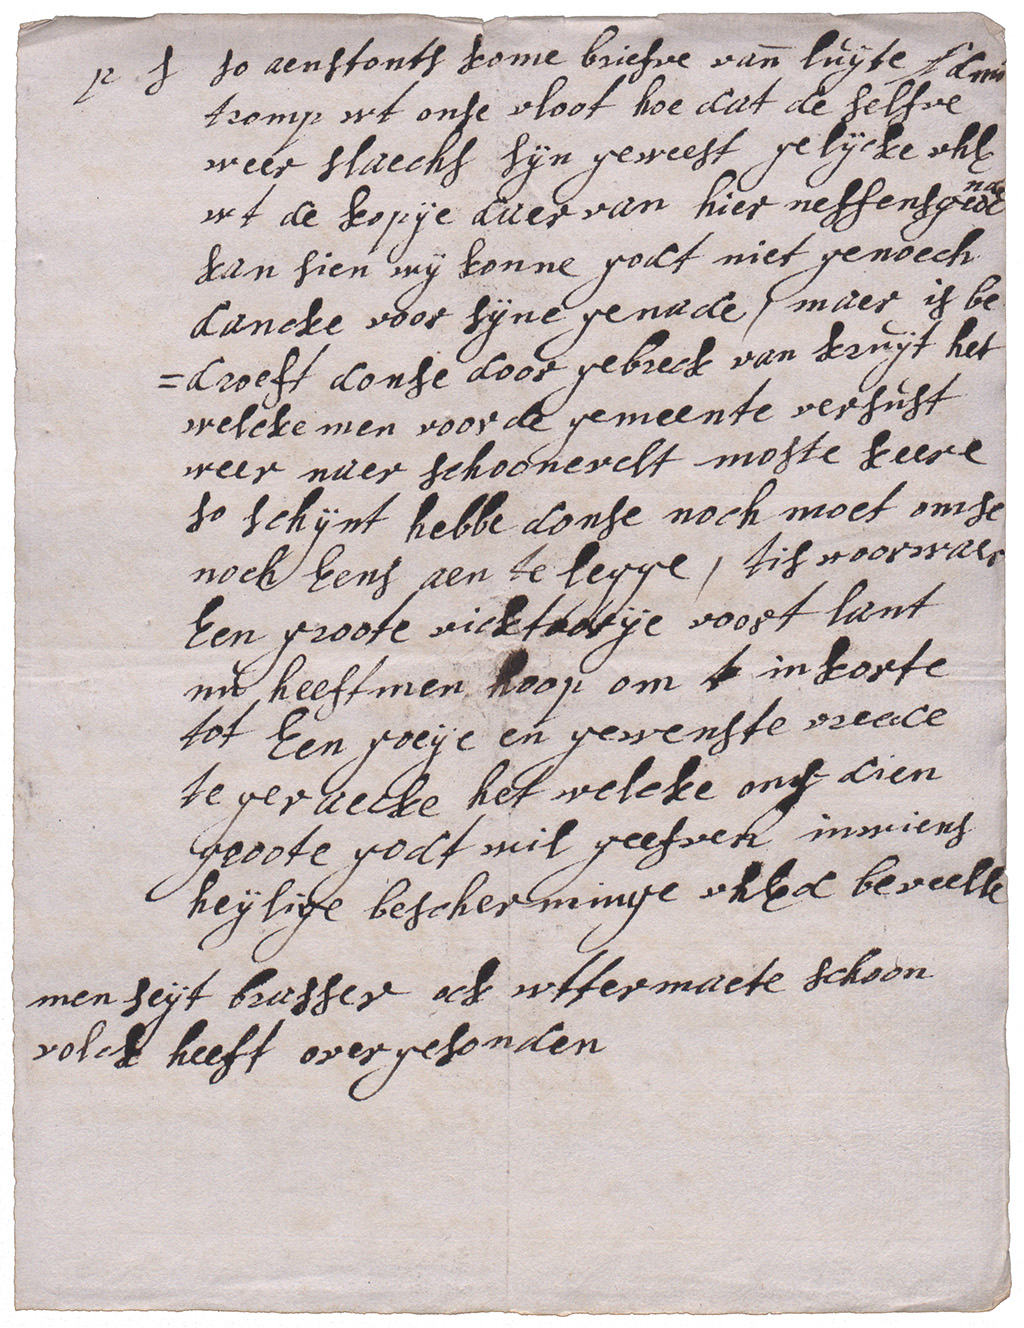 p s so aenstonts kome briefve van luyte Adm
tromp wt onse vloot hoe dat de selfve
weer slaechs sijn geweest gelijcke vhE
wt de kopije daer van hier neffens gaende
kan sien wij konne godt niet genoech
dancke voor sijne genade / maer is be
=droeft donse door gebreck van kruijt het
welcke men voor de gemeente versust
weer naer schoonevelt moste keere
so schijnt hebbe donse noch moet omse
noch Eens aen te legge / tis voorwaer
Een groote vicktoorije voort lant
nu heeft men hoop om in korte
tot Een goeije en gewenste vreede
te geraecke het welcke ons dien
groote godt wil geefven in wiens
heijlige bescherminge vhEd beveelle
men seijt brasser ock wttermaete schoon
volck heeft overgesonden